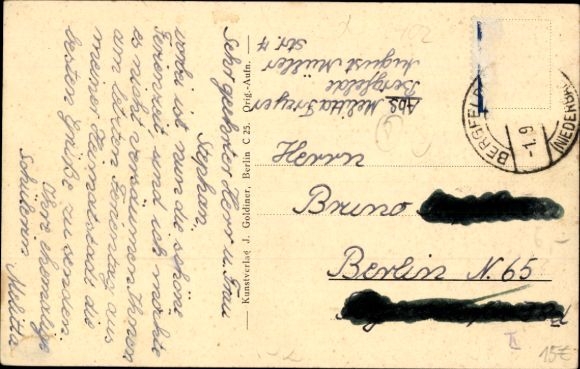 Sehr geehrter Herr u. Frau
Stephan,
vorbei ist nun die schöne
Ferienzeit, und ich möchte
es nicht versäumen Ihnen
am letzten Ferientag aus
meiner Heimatstadt die
besten Grüße zu senden.
Ihre ehemalige
Schülerin Melitta
Kunstverlag J. Goldiner, Berlin C 25. Orig.-Aufn.
Abs. Melitta Freyer
Bergfelde
August Müller
str. 4
BERGFELDE
-1. 9
(NIEDERB
Herrn
Bruno
Berlin N. 65
II
15€